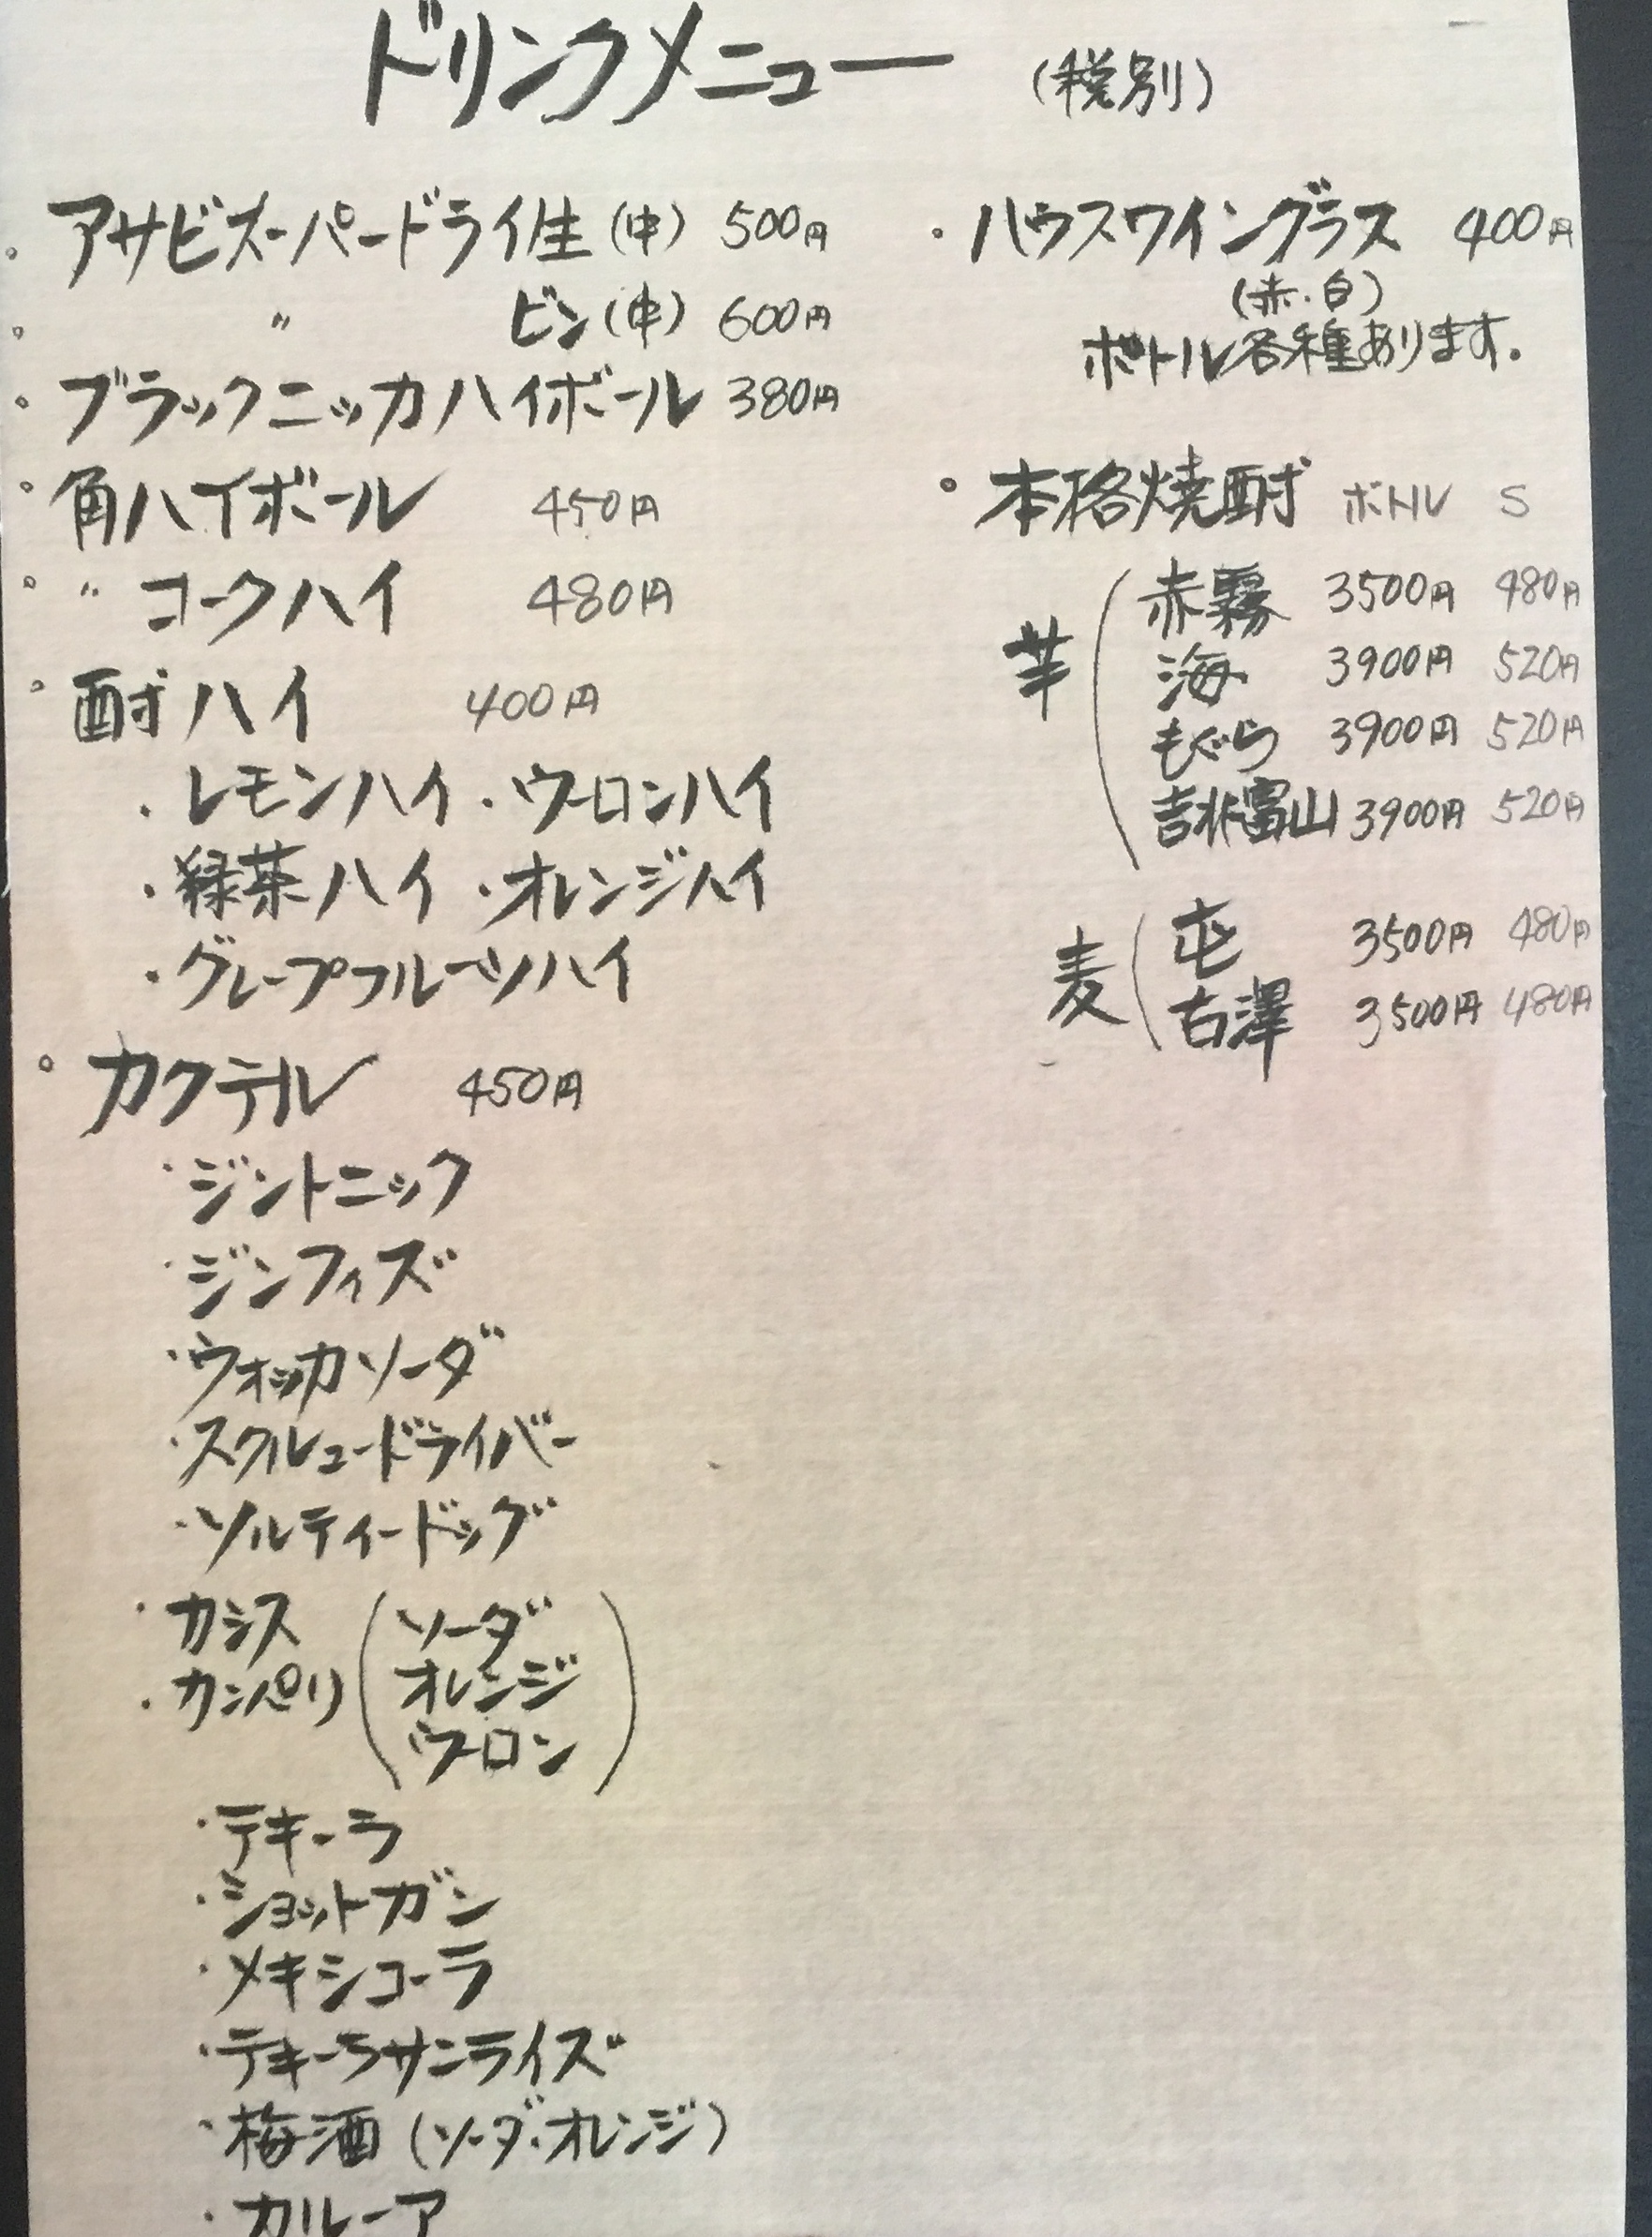 ドリンクメニュー (税別)
・アサヒスーパードライ生(中) 500円
・〃 ビン(中) 600円
・ブラックニッカハイボール 380円
・角ハイボール 450円
・〃コークハイ 480円
・酎ハイ 400円
・レモンハイ・ウーロンハイ
・緑茶ハイ・オレンジハイ
・グレープフルーツハイ
・カクテル 450円
・ジントニック
・ジンフィズ
・ウォッカソーダ
・スクリュードライバー
・ソルティードッグ
・カシス
・カンパリ
(ソーダ
オレンジ
ウーロン)
・テキーラ
・ショットガン
・メキシコーラ
・テキーラサンライズ
・梅酒(ソーダ・オレンジ)
・カルーア
・ハウスワイングラス 400円
(赤・白)
ボトル各種あります。
・本格焼酎 ボトル S
芋
赤霧 3500円 480円
海 3900円 520円
もぐら 3900円 520円
富山 3900円 520円
麦
屯 3500円 480円
古澤 3500円 480円